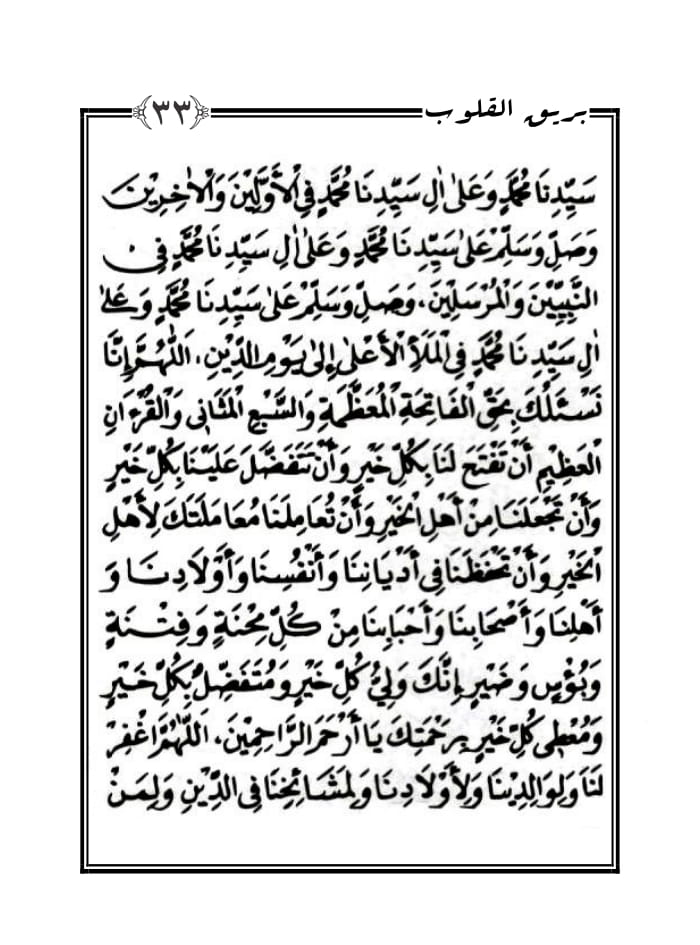 بريق القلوب
﴿٣٣﴾
سَيِّدِنَا مُحَمَّدٍ وَعَلَىٰ اٰلِ سَيِّدِنَا مُحَمَّدٍ فِي الْأَوَّلِيْنَ وَالْاٰخِرِيْنَ
وَصَلِّ وَسَلِّمْ عَلَىٰ سَيِّدِنَا مُحَمَّدٍ وَعَلَىٰ اٰلِ سَيِّدِنَا مُحَمَّدٍ فِي
النَّبِيِّيْنَ وَالْمُرْسَلِيْنَ، وَصَلِّ وَسَلِّمْ عَلَىٰ سَيِّدِنَا مُحَمَّدٍ وَعَلَىٰ
اٰلِ سَيِّدِنَا مُحَمَّدٍ فِي الْمَلَأِ الْأَعْلَىٰ إِلَىٰ يَوْمِ الدِّيْنِ، اَللّٰهُمَّ إِنَّا
نَسْئَلُكَ بِحَقِّ الْفَاتِحَةِ الْمُعَظَّمَةِ وَالسَّبْعِ الْمَثَانِي وَالْقُرْءَانِ
الْعَظِيْمِ أَنْ تَفْتَحَ لَنَا بِكُلِّ خَيْرٍ وَأَنْ تَتَفَضَّلَ عَلَيْنَا بِكُلِّ خَيْرٍ
وَأَنْ تَجْعَلَنَا مِنْ أَهْلِ الْخَيْرِ وَأَنْ تُعَامِلَنَا مُعَامَلَتَكَ لِأَهْلِ
الْخَيْرِ وَأَنْ تَحْفَظَنَا فِي أَدْيَانِنَا وَأَنْفُسِنَا وَأَوْلَادِنَا وَ
أَهْلِنَا وَأَصْحَابِنَا وَأَحْبَابِنَا مِنْ كُلِّ مِحْنَةٍ وَفِتْنَةٍ
وَبُؤْسٍ وَضَيْرٍ إِنَّكَ وَلِيُّ كُلِّ خَيْرٍ وَمُتَفَضِّلٌ بِكُلِّ خَيْرٍ
وَمُعْطِي كُلِّ خَيْرٍ بِرَحْمَتِكَ يَا أَرْحَمَ الرَّاحِمِيْنَ، اَللّٰهُمَّ اغْفِرْ
لَنَا وَلِوَالِدِيْنَا وَلِأَوْلَادِنَا وَلِمَشَائِخِنَا فِي الدِّيْنِ وَلِمَنْ